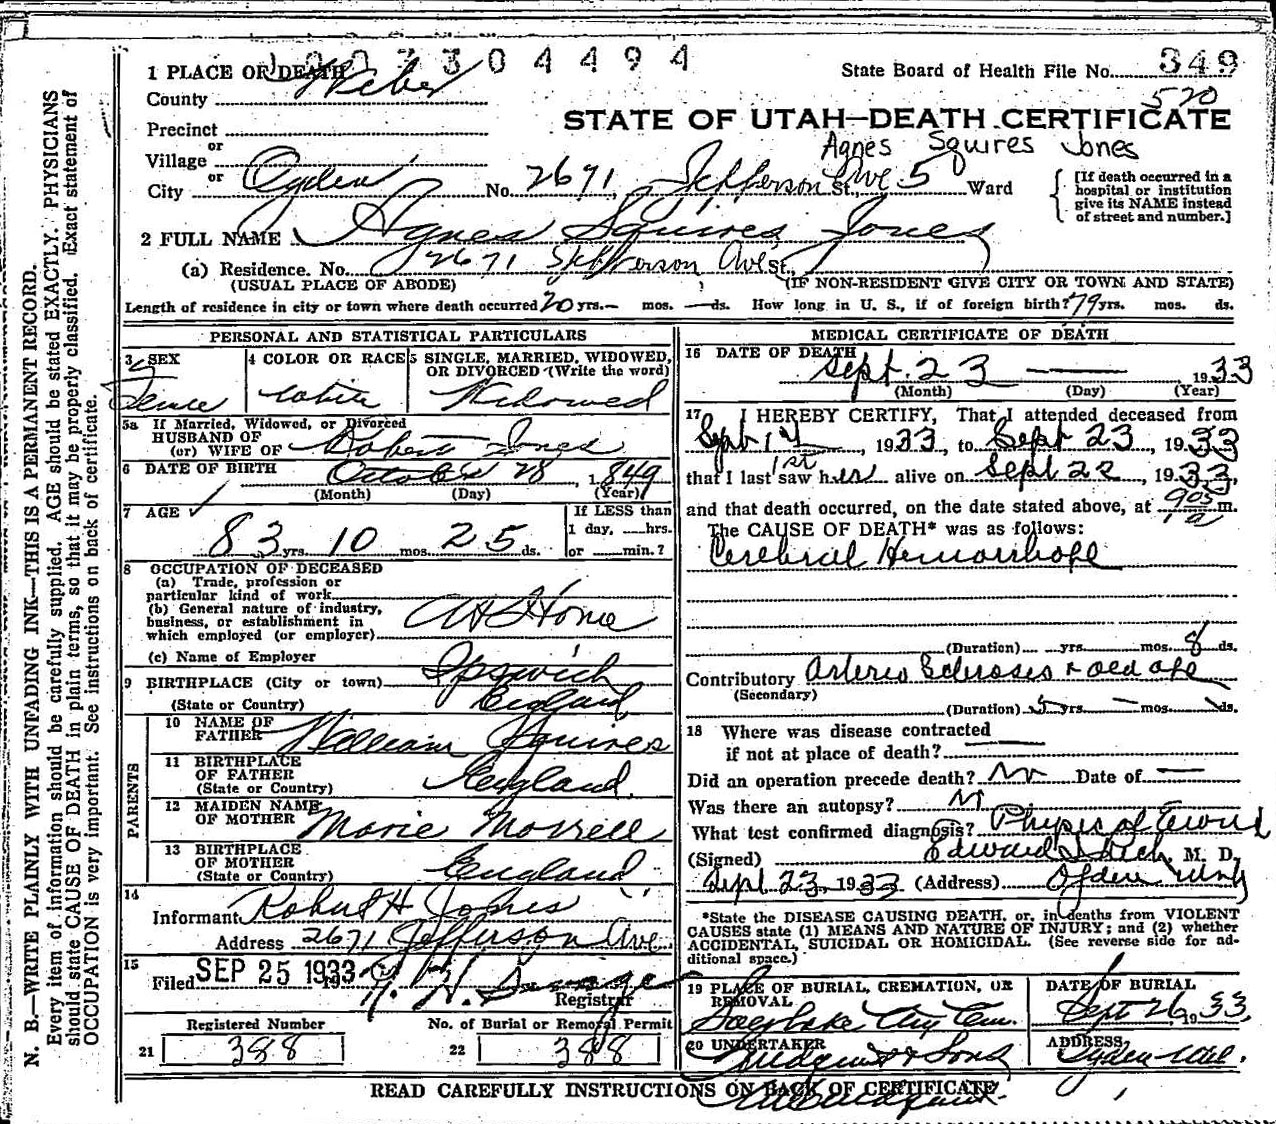 3 0 4 4 9 4
1 PLACE OF DEATH
Weber
State Board of Health File No. 349
570
County
STATE OF UTAH—DEATH CERTIFICATE
Precinct
or
Agnes Squires Jones
Village
or
City Ogden No. 2671 Jefferson St. Ave 5 Ward
[If death occurred in a hospital or institution give its NAME instead of street and number.]
2 FULL NAME Agnes Squires Jones
(a) Residence. No. 2671 Jefferson Ave St.,
(USUAL PLACE OF ABODE) (IF NON-RESIDENT GIVE CITY OR TOWN AND STATE)
Length of residence in city or town where death occurred 70 yrs. — mos. — ds. How long in U. S., if of foreign birth? 79 yrs. mos. ds.
PERSONAL AND STATISTICAL PARTICULARS
3 SEX
4 COLOR OR RACE
5 SINGLE, MARRIED, WIDOWED,
OR DIVORCED (Write the word)
white Widowed
5a If Married, Widowed, or Divorced
HUSBAND OF
(or) WIFE OF Robert Jones
6 DATE OF BIRTH October 28, 1849
(Month) (Day) (Year)
7 AGE ✓
If LESS than
1 day, hrs.
83 yrs. 10 mos. 25 ds. or min.?
8 OCCUPATION OF DECEASED
(a) Trade, profession or
particular kind of work
(b) General nature of industry,
business, or establishment in
which employed (or employer) At Home
(c) Name of Employer
9 BIRTHPLACE (City or town) Ipswich
(State or Country) England
PARENTS
10 NAME OF
FATHER William Squires
11 BIRTHPLACE
OF FATHER
(State or Country) England
12 MAIDEN NAME
OF MOTHER Marie Morrell
13 BIRTHPLACE
OF MOTHER
(State or Country) England
14
Informant Robert H Jones
Address 2671 Jefferson Ave.
15
Filed SEP 25 1933
Registrar
Registered Number No. of Burial or Removal Permit
21 388 22 388
MEDICAL CERTIFICATE OF DEATH
16 DATE OF DEATH
Sept. 23 — 1933
(Month) (Day) (Year)
17 I HEREBY CERTIFY, That I attended deceased from
Sept 1933, to Sept 23, 1933
1st
that I last saw her alive on Sept 22, 1933,
and that death occurred, on the date stated above, at 905 a m.
The CAUSE OF DEATH* was as follows:
Cerebral Hemorrhage
(Duration) yrs. mos. 8 ds.
Contributory Arterio Sclerosis + old age
(Secondary)
(Duration) 5 yrs. — mos. ds.
18 Where was disease contracted
if not at place of death?
Did an operation precede death? No Date of —
Was there an autopsy? No
What test confirmed diagnosis? Physical
(Signed) Edward I Rich, M. D.
Sept 23, 1933 (Address) Ogden Utah
*State the DISEASE CAUSING DEATH, or, in deaths from VIOLENT
CAUSES state (1) MEANS AND NATURE OF INJURY; and (2) whether
ACCIDENTAL, SUICIDAL OR HOMICIDAL. (See reverse side for ad-
ditional space.)
19 PLACE OF BURIAL, CREMATION, OR
REMOVAL
Salt Lake City Cem.
DATE OF BURIAL
Sept 26, 1933.
20 UNDERTAKER
& Sons
ADDRESS
Ogden Utah.
READ CAREFULLY INSTRUCTIONS ON BACK OF CERTIFICATE
N. B.—WRITE PLAINLY WITH UNFADING INK—THIS IS A PERMANENT RECORD.
Every item of information should be carefully supplied. AGE should be stated EXACTLY. PHYSICIANS
should state CAUSE OF DEATH in plain terms, so that it may be properly classified. Exact statement of
OCCUPATION is very important. See instructions on back of certificate.